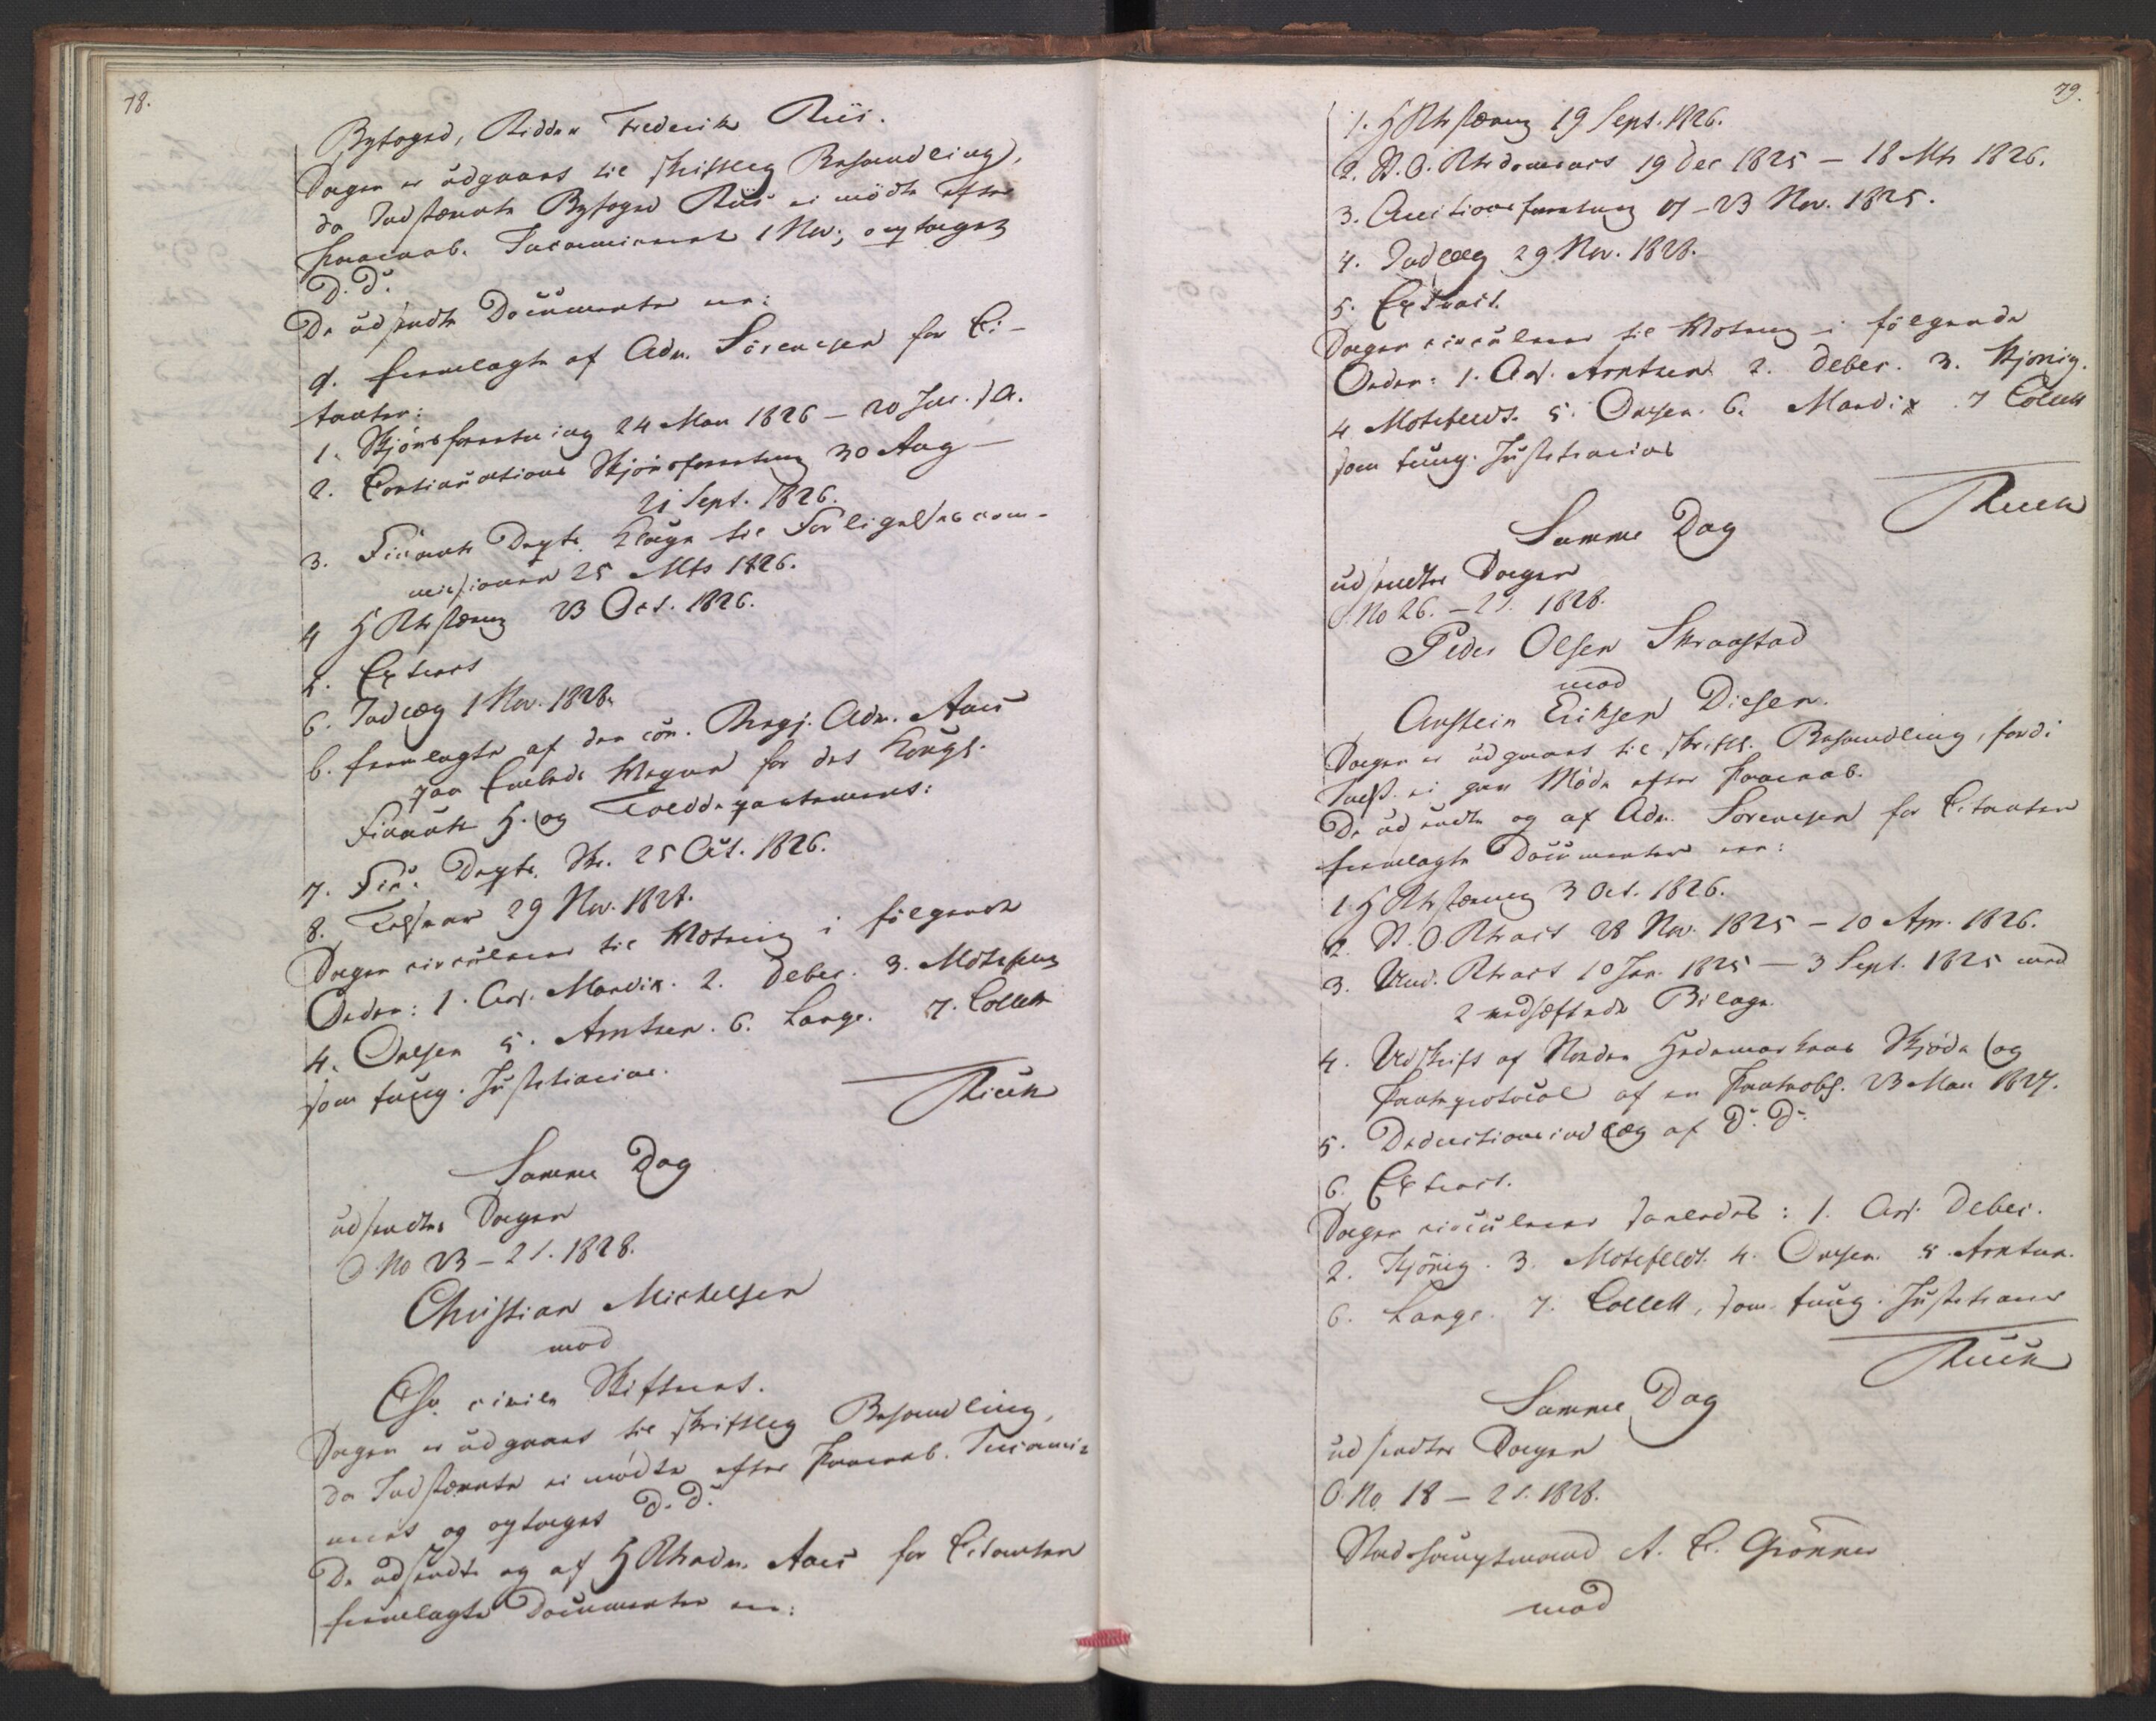 78.
Byfoged, Ridder Frederik Riis.
Sagen er udgaaet til skriftlig Behandling,
da Indstævnte Byfoged Riis ei mødte efter
Paaraab. Incamineret 1 Nov; optaget
D. D.
De udsendte Documenter ere:
a. fremlagte af Adv. Sørensen for Ci-
tanter:
1. Skjönsforretning 24 Mai 1826 – 20 Jul. s. A.
2. Continuations Skjönsforretning 30 Aug –
21 Sept. 1826.
3. Finants Depts. Klage til Forligelsescom-
missionen 25 Mts 1826.
4 H Rtsstævng 23 Oct. 1826.
5. Extract
6. Indlæg 1 Nov. 1828.
b. fremlagte af den con. Regj. Adv. Aars
paa Embeds Vegne for det Kongl.
Finants H. og Tolddepartement:
7. Fin. Depts. Skr. 25 Oct. 1826.
8. Tilsvar 29 Nov. 1828.
Sagen circulerer til Votering i følgende
Orden: 1. Ass. Mandix. 2. Debes. 3. Motzfeldt
4. Omsen 5. Arntzen. 6. Lange. 7. Collett
som fung. Justitiarius.
Rieck
Samme Dag
udsendtes Sagen
O No 23 – 2 S. 1828.
Christian Michelsen
mod
Chra civile Skifteret.
Sagen er udgaaet til skriftlig Behandling,
da Indstævnte ei mødte efter Paaraab. Incami-
neret og optaget D. D.
De udsendte og af H Rtsadv. Aars for Citanten
fremlagte Documenter ere:
79.
1. H Rtsstævng 19 Sept. 1826.
2. St. O. Rtsdomsact 19 Dec 1825 – 18 Mts 1826.
3. Auctionsforretning 17 – 23 Nov. 1825.
4. Indlæg 29 Nov. 1828.
5. Extract.
Sagen circulerer til Votering i følgende
Orden: 1. Ass. Arntzen 2. Debes. 3. Kjönig.
4 Motzfeldt. 5. Omsen. 6. Mandix. 7 Collett
som fung. Justitiarius
Rieck
Samme Dag
udsendtes Sagen
O. No 26. – 2 S. 1828.
Peder Olsen Skraastad
mod
Anstein Eriksen Diesen.
Sagen er udgaaet til skriftl. Behandling, fordi
Indst. ei gav Möde efter Paaraab.
De udsendte og af Adv. Sørensen for Citanten
fremlagte Documenter ere:
1. H Rtsstævng 3 Oct. 1826.
2. St. O. Rtsact 28 Nov. 1825 – 10 Apr. 1826.
3. Und. Rtsact 10 Jan. 1825 – 3 Sept. 1825 med
2 vedhæftede Bilage.
4. Udskrift af Nordre Hedemarkens Skjöde og
Panteprotocol af en Panteobl. 23 Mai 1827.
5. Deductionsindlæg af D. D.
6. Extract.
Sagen circulerer saaledes: 1. Ass. Debes.
2. Kjönig. 3. Motzfeldt. 4. Omsen. 5. Arntzen.
6. Lange. 7. Collett, som fung. Justitiarius
Rieck
Samme Dag
udsendtes Sagen
O. No. 18 – 2 S. 1828.
Stadshauptmand A. C. Grönner
mod